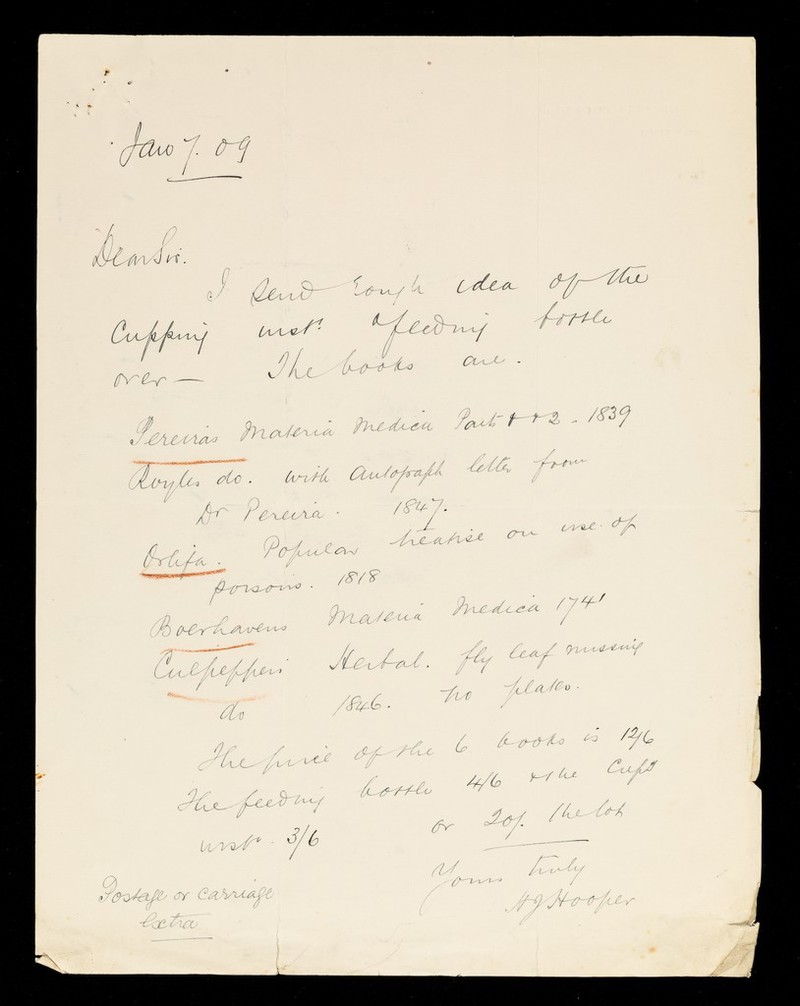 Jan 7. 09
Dear Sir.
I send rough idea of the
Cupping inst. & feeding bottle
over — The books are.
Pereiras Materia Medica Parts 1 + 2 . 1839
Royles do. with autograph letter from
Dr Pereira . 1847.
Orfila . Popular treatise on use of
poisons . 1818
Boerhavens Materia Medica 1741
Culpeppers Herbal. fly leaf missing
do 1846. no plates.
The price of the 6 books is 12/6
The feeding bottle 4/6 + the Cupg
inst. 3/6 or 20/. the lot
Yours truly
HJHooper
Postage or carriage
Extra